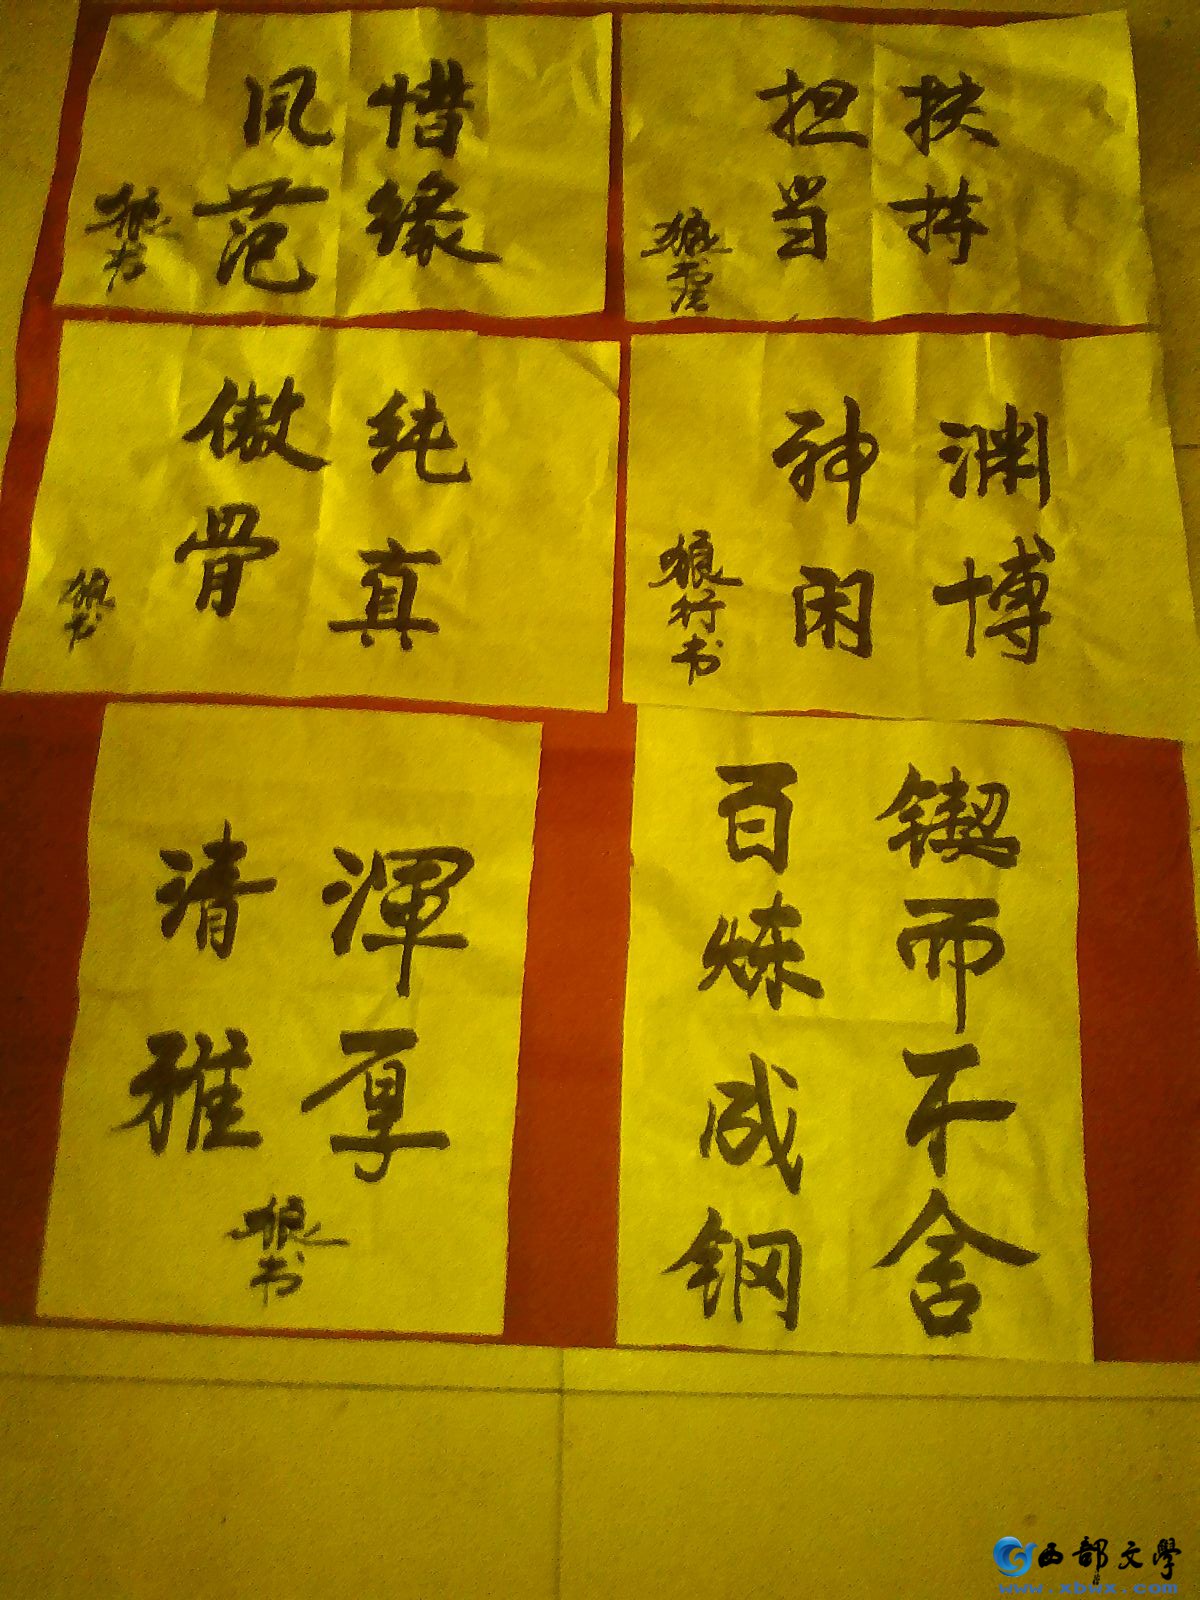 惜缘
风范
狼书
扶持
担当
纯真
傲骨
狼书
渊博
神闲
狼行书
浑厚
清雅
狼书
锲而不舍
百炼成钢
西部文学
www.xbwx.com